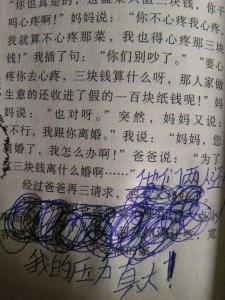 “你也真是的，这盘菜只值三块钱，你干
吗心疼啊！”妈妈说：“你不心疼我心疼，
我就算不心疼那菜，我也得心疼那三块
钱！”我插了句：“你们别吵了。”“要心
疼你去心疼，三块钱算什么呀，那人家做
生意的还收进了假的一百块纸钱呢！”妈
妈说：“也对呀。”突然，妈妈又说：
不行，我跟你离婚。”我说：“妈妈，您
离婚了，我怎么办啊！”爸爸说：“为了
三块钱离什么婚啊……”
经过爸爸再三请求，
他们两人还
宽
我的压力真大！